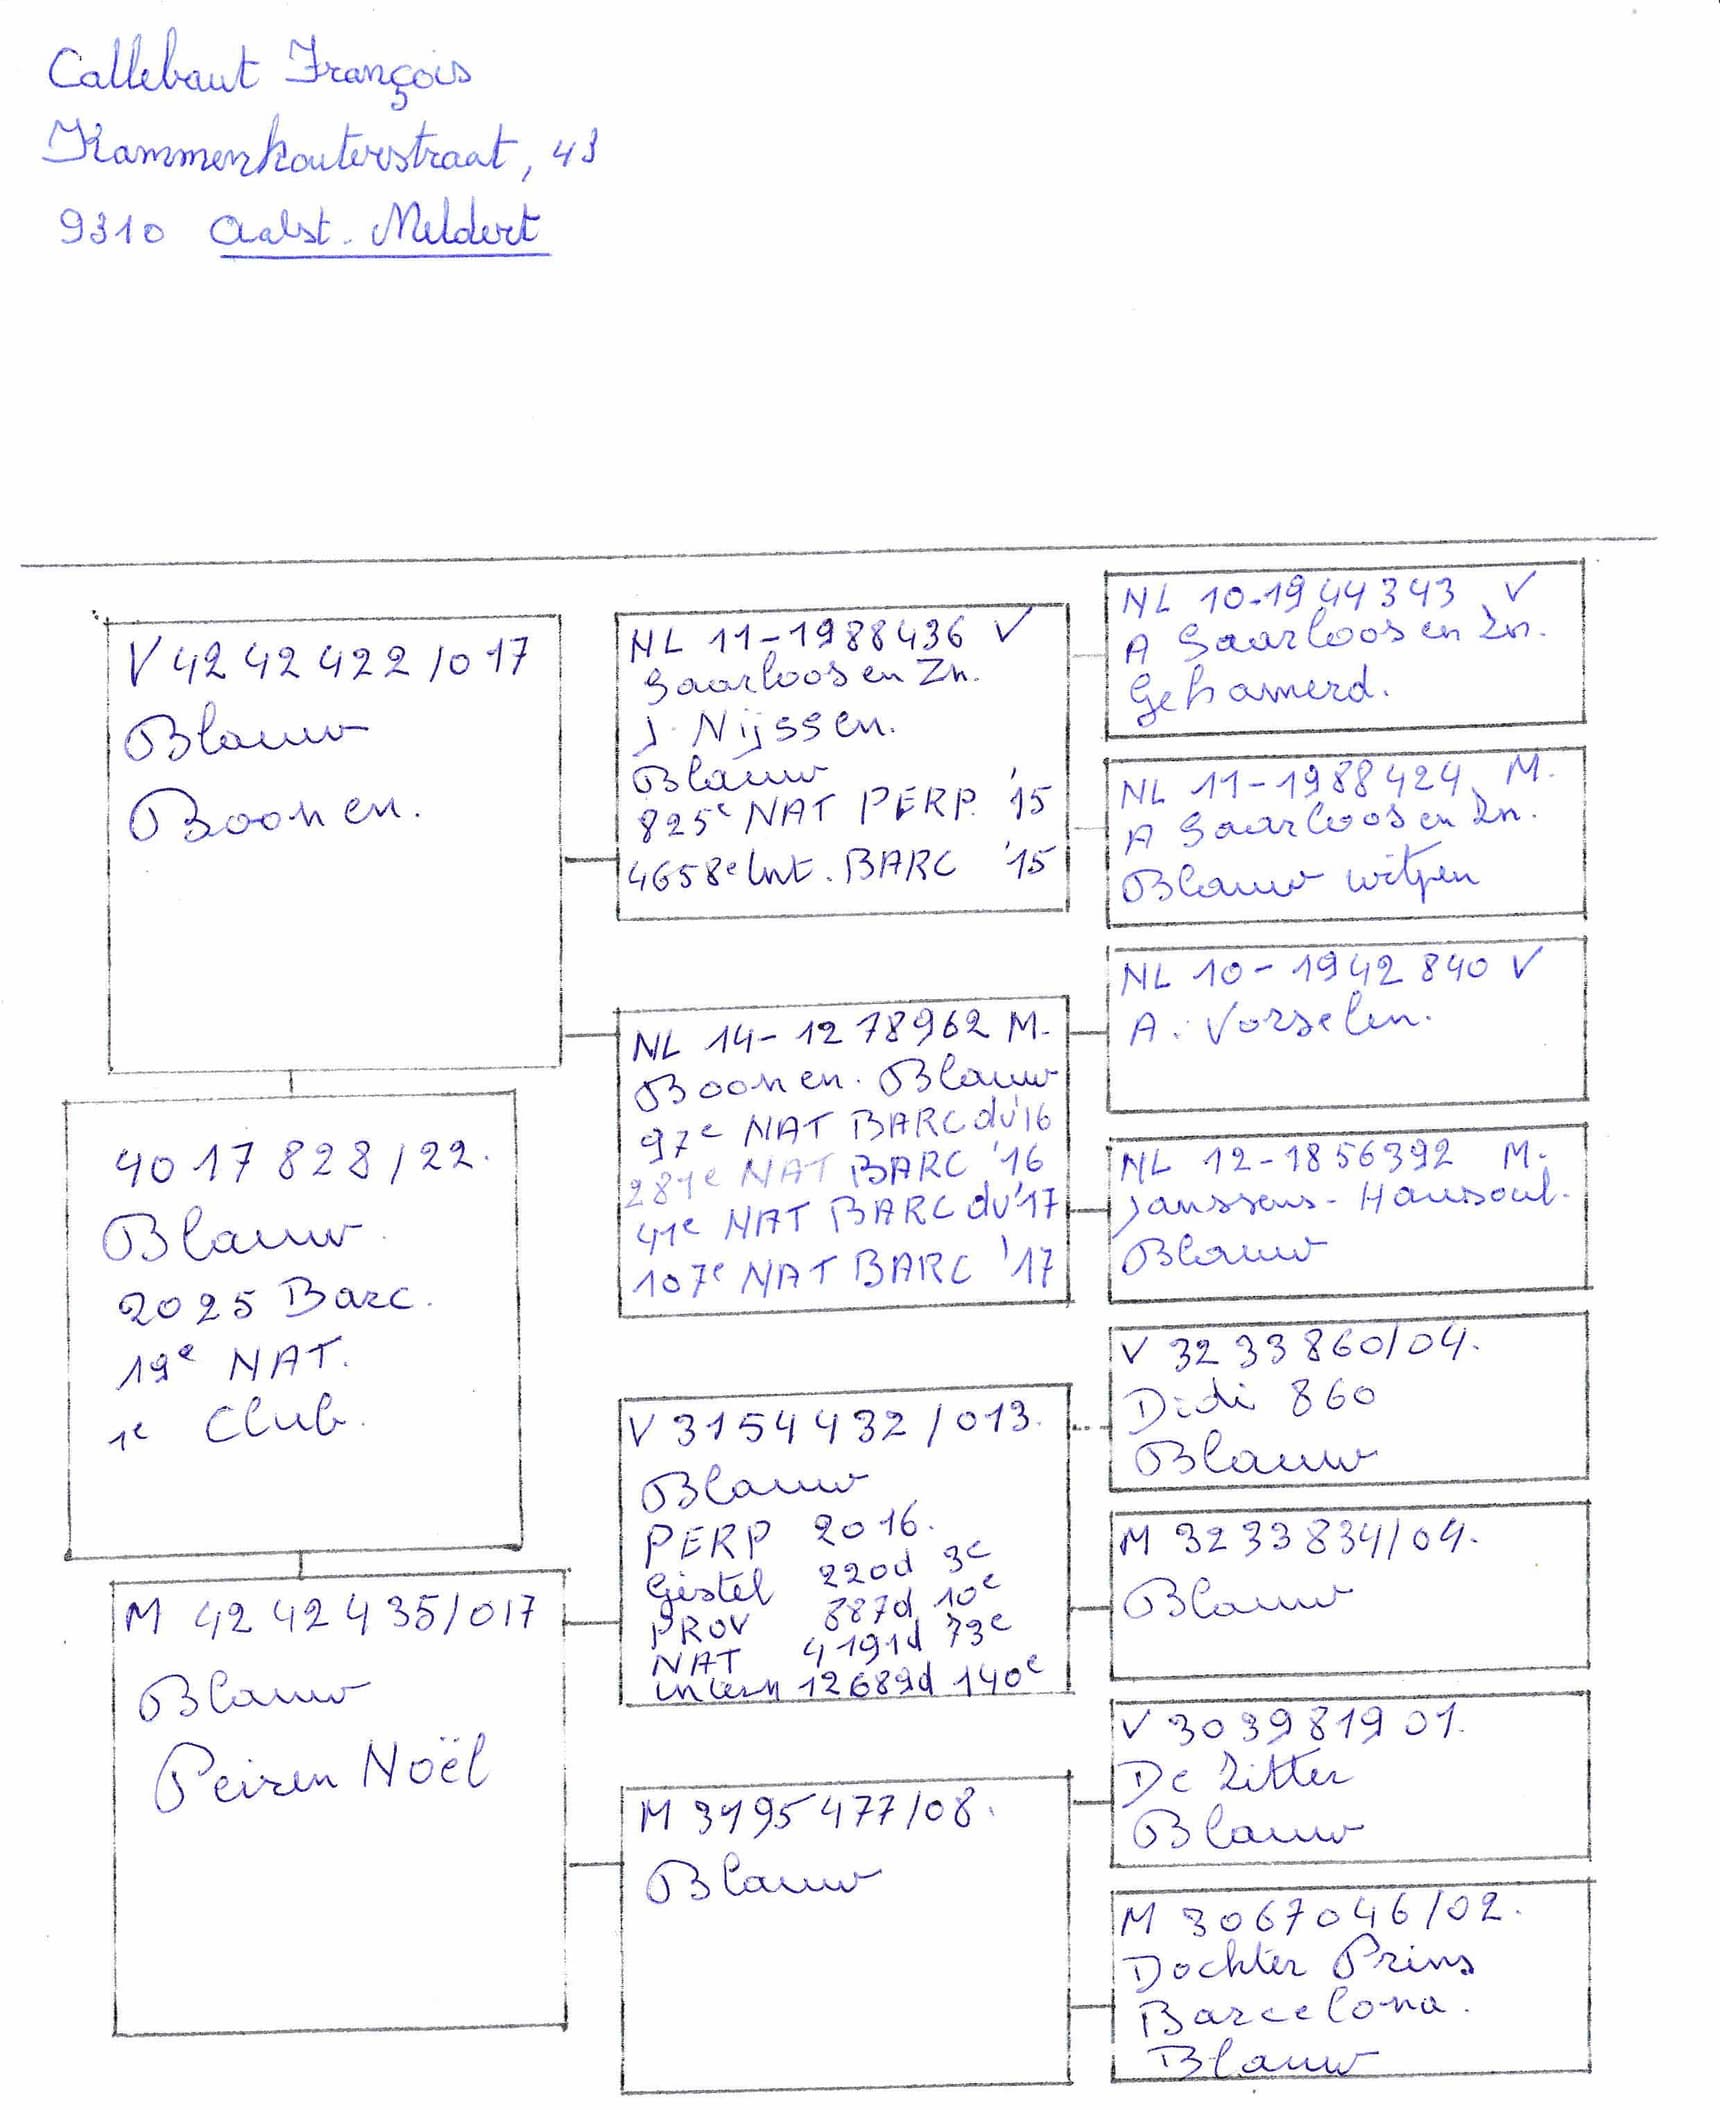 Callebaut François
Kammenkouterstraat, 43
9310 Aalst. Meldert
V 4242422/017
Blauw
Boonen.
4017828/22.
Blauw.
2025 Barc.
19e NAT.
1e Club.
M 4242435/017
Blauw
Peiren Noël
NL 11-1988436 V
Saarloos en Zn.
J. Nijssen.
Blauw
825e NAT PERP. '15
4658e Int. BARC '15
NL 14-1278962 M.
Boonen. Blauw
97e NAT BARC dv'16
281e NAT BARC '16
41e NAT BARC dv'17
107e NAT BARC '17
V 3154432/013.
Blauw
PERP 2016.
Gistel 220d 3e
PROV 887d 10e
NAT 4191d 73e
intern 12689d 140e
M 3195477/08.
Blauw
NL 10-1944343 V
A Saarloos en Zn.
Gehamerd.
NL 11-1988424 M.
A Saarloos en Zn.
Blauw witpen
NL 10-1942840 V
A. Vorselen.
NL 12-1856392 M.
Janssens-Hausoul.
Blauw
V 3233860/04.
Didi 860
Blauw
M 3233834/04.
Blauw
V 3039819 01.
De Zitter
Blauw
M 3067046/02.
Dochter Prins
Barcelona.
Blauw